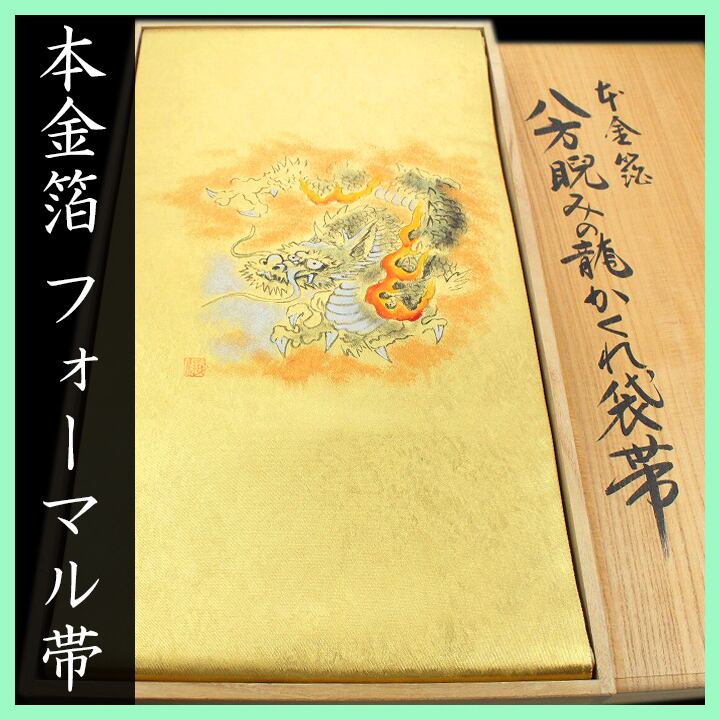 本金箔 フォーマル帯
本金箔
八方睨みの龍かくれ袋帯